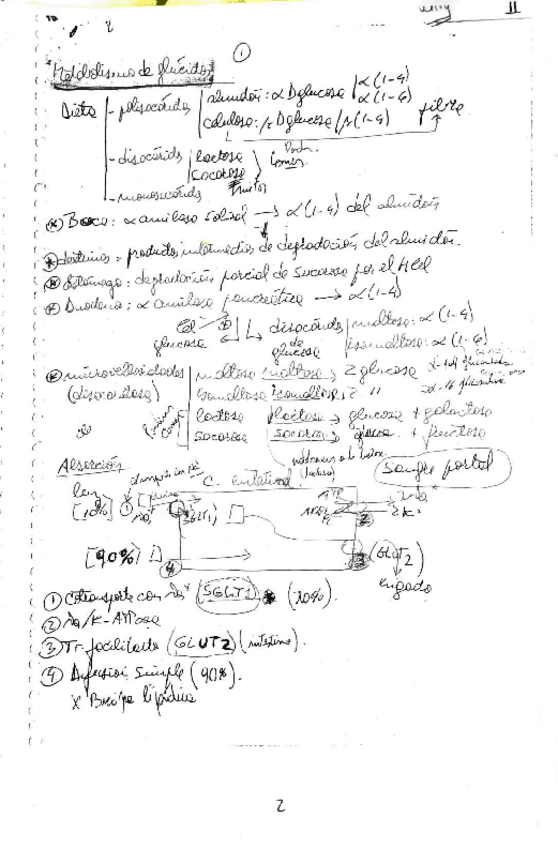 II
①
Metabolismo de glúcidos
Dieta
- polisacáridos
almidón: α Dglucosa α(1-4)
α(1-6)
celulosa: β Dglucosa / β(1-4)
fibra
- disacáridos
lactosa
sacarosa
frutos
- monosacáridos
Boca: α amilasa salival → α(1-4) del almidón
productos intermedios de degradación del almidón.
Estómago: degradación parcial de sacarosa por el HCl
Duodeno: α amilasa pancreática → α(1-4)
glucosa
disacáridos de glucosa
maltosa: α(1-4)
isomaltosa: α(1-6)
microvellosidades (disacaridasas)
maltosa maltasa → 2 glucosa
isomaltosa isomaltasa → 2 "
lactosa lactasa → glucosa + galactosa
sacarosa sacarasa → glucosa + fructosa
Absorción
sangre portal
C. intestinal
[10%] ①
SGLT1
ATP
②
2K+
[90%]
④
③
(GLUT2)
hígado
① Cotransporte con Na+ (SGLT1) (10%).
② Na/K-ATPasa
③ Tr facilitado (GLUT2) (intestino).
④ Difusión simple (90%).
X Bicapa lipídica
2